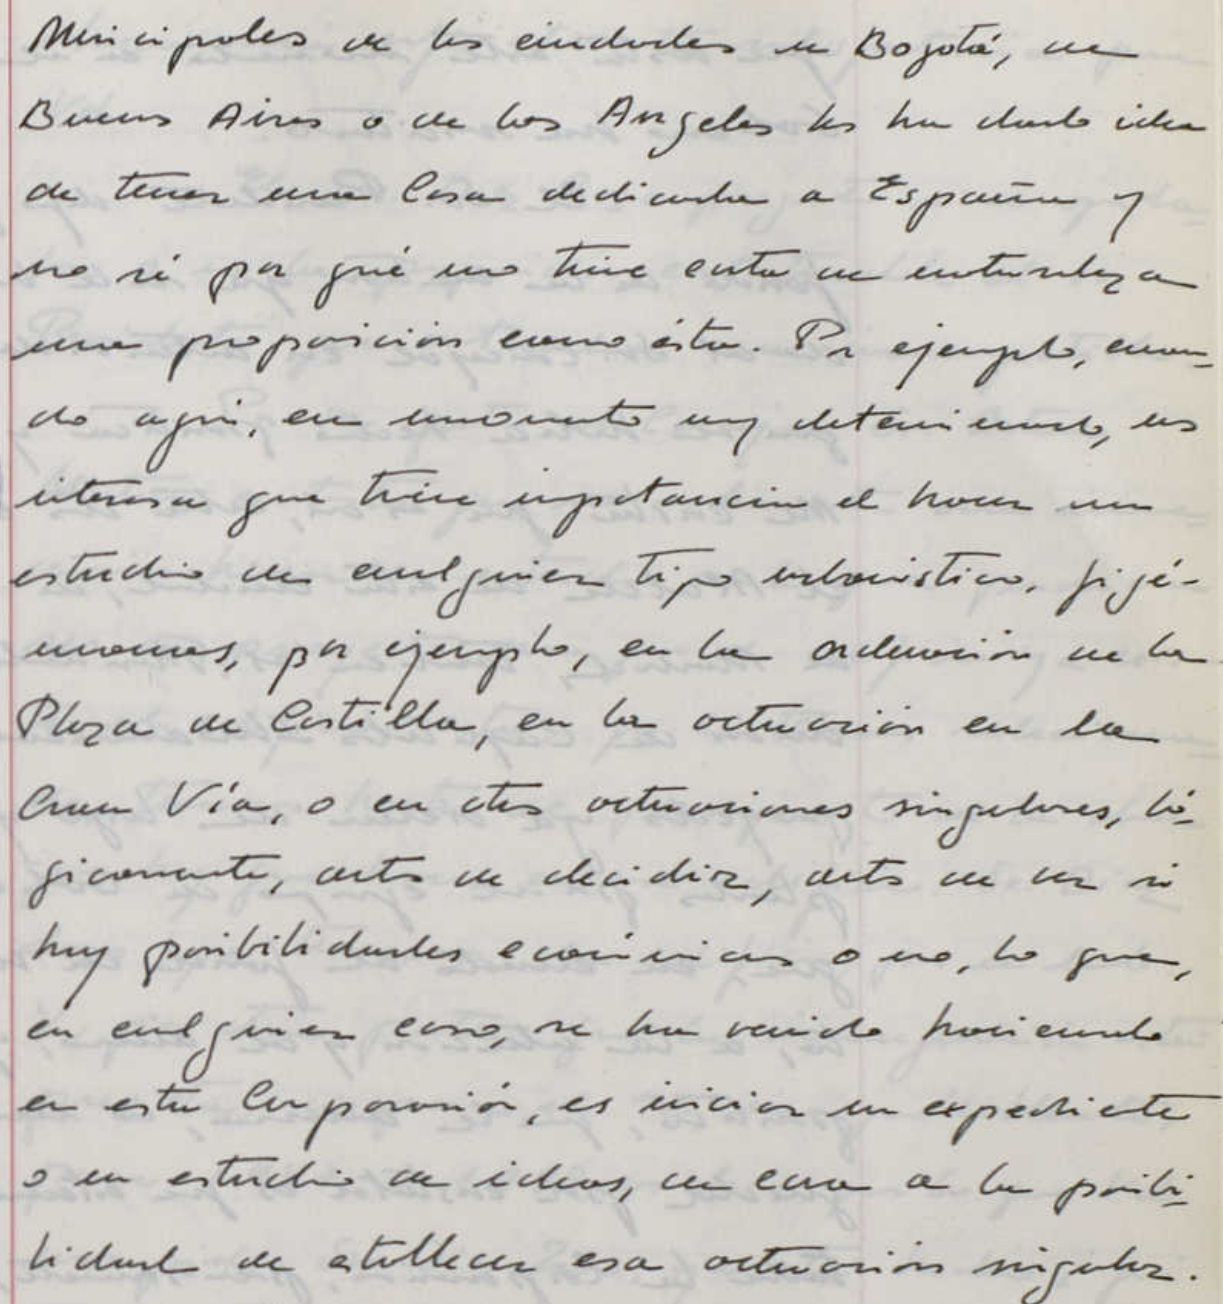 Municipales de las ciudades de Bogotá, de
Buenos Aires o de Los Angeles les han dado idea
de tener una Casa dedicada a España y
no sé por qué no tiene carta de naturaleza
una proposición como ésta. Por ejemplo, cuan-
do aquí, en momento muy determinado, nos
interesa que tiene importancia el hacer un
estudio de cualquier tipo urbanístico, fijé-
monos, por ejemplo, en la ordenación de la
Plaza de Castilla, en la actuación en la
Gran Vía, o en otras actuaciones singulares, ló-
gicamente, antes de decidir, antes de ver si
hay posibilidades económicas o no, lo que,
en cualquier caso, se ha venido haciendo
en esta Corporación, es iniciar un expediente
o un estudio de ideas, de cara a la posibi-
lidad de establecer esa actuación singular.